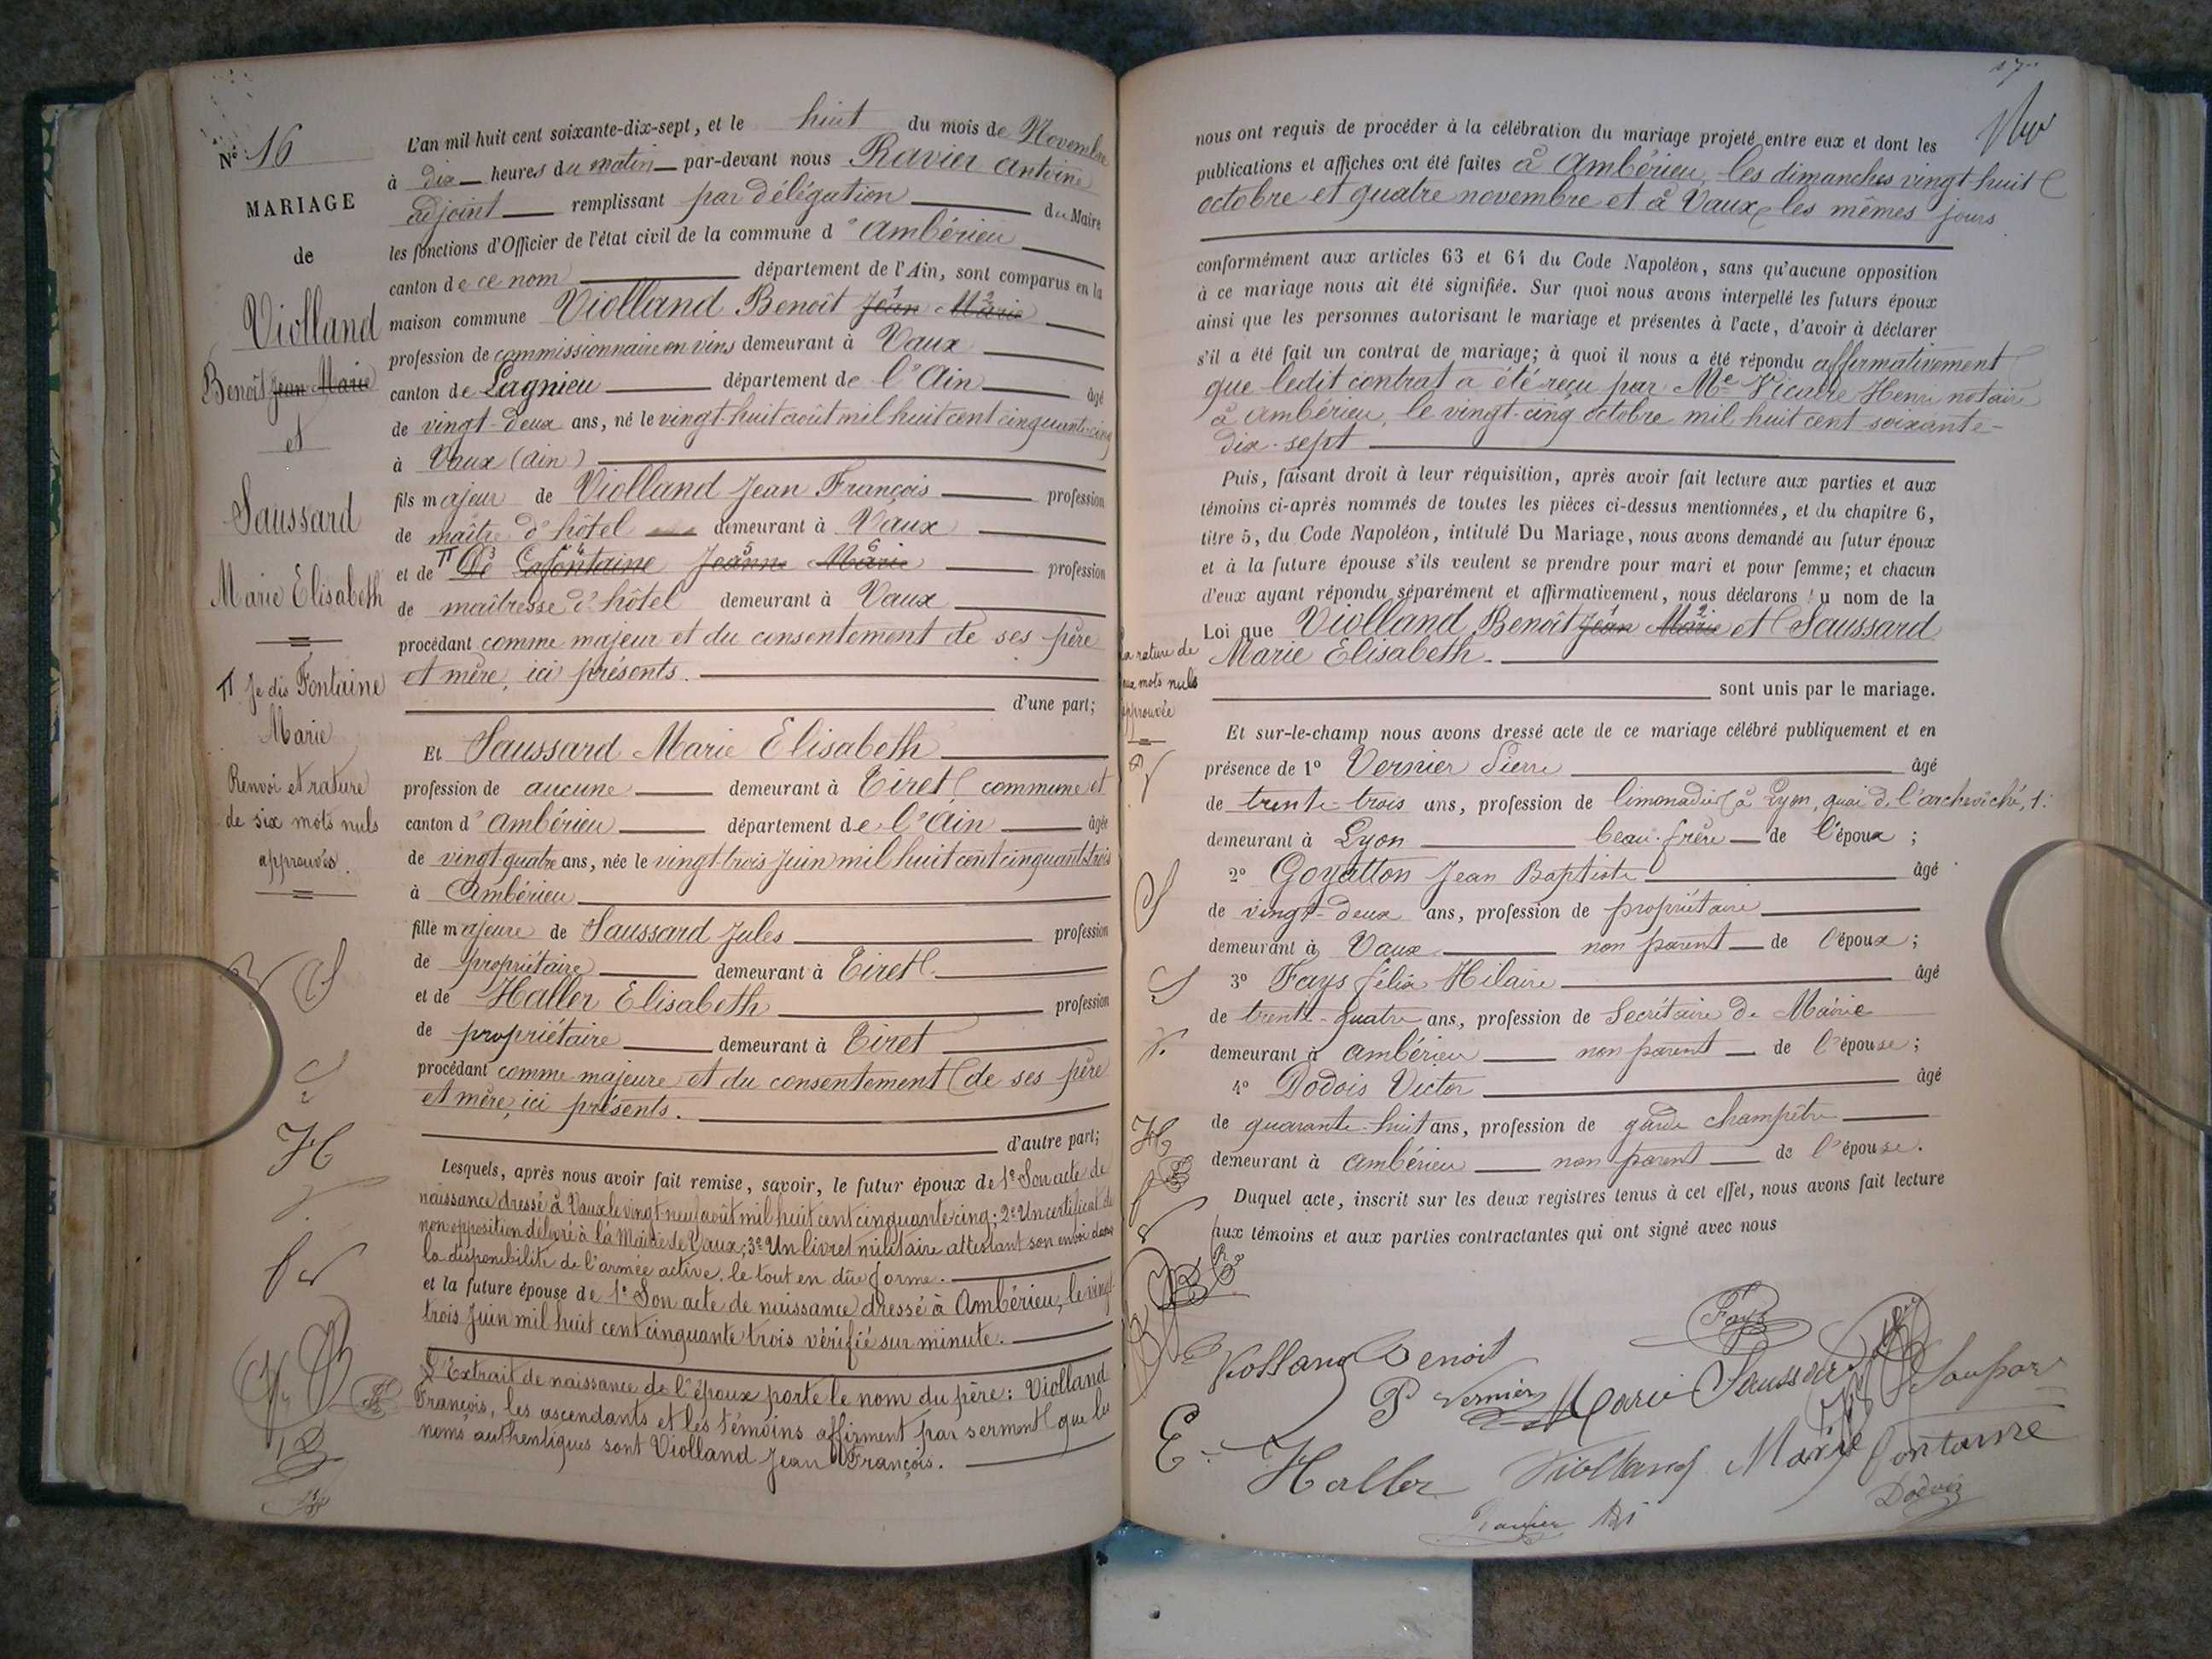 N° 16
MARIAGE
de
Violland
Benoît Jean Marie
et
Saussard
Marie Elisabeth
π Je dis Fontaine
Marie
Renvoi et rature
de six mots nuls
approuvés.
L'an mil huit cent soixante-dix-sept, et le huit du mois de Novembre
à dix heures du matin par-devant nous Ravier Antoine
adjoint remplissant par délégation du Maire
les fonctions d'Officier de l'état civil de la commune d'Ambérieu
canton de ce nom département de l'Ain, sont comparus en la
maison commune Violland Benoît Jean 1 Marie 2
profession de commissionnaire en vins demeurant à Vaux
canton de Lagnieu département de l'Ain âgé
de vingt-deux ans, né le vingt-huit août mil huit cent cinquante-cinq
à Vaux (Ain)
fils majeur de Violland Jean François profession
de maître d'hôtel demeurant à Vaux
et de π De 3 Lafontaine 4 Jeanne 5 Marie 6 profession
de maîtresse d'hôtel demeurant à Vaux
procédant comme majeur et du consentement de ses père
et mère, ici présents.
d'une part;
Et Saussard Marie Elisabeth
profession de aucune demeurant à Tiret commune et
canton d'Ambérieu département de l'Ain âgée
de vingt quatre ans, née le vingt-trois Juin mil huit cent cinquante trois
à Ambérieu
fille majeure de Saussard Jules profession
de propriétaire demeurant à Tiret
et de Haller Elisabeth profession
de propriétaire demeurant à Tiret
procédant comme majeure et du consentement de ses père
et mère, ici présents.
d'autre part;
Lesquels, après nous avoir fait remise, savoir, le futur époux de 1° Son acte de
naissance dressé à Vaux le vingt-neuf août mil huit cent cinquante cinq; 2° Un certificat de
non opposition délivré à la Mairie de Vaux; 3° Un livret militaire attestant son envoi dans
la disponibilité de l'armée active, le tout en dûe forme.
et la future épouse de 1° Son acte de naissance dressé à Ambérieu, le vingt
trois Juin mil huit cent cinquante trois vérifié sur minute.
L'Extrait de naissance de l'époux porte le nom du père: Violland
François, les ascendants et les témoins affirment par serment que les
noms authentiques sont Violland Jean François.
17
nous ont requis de procéder à la célébration du mariage projeté entre eux et dont les
publications et affiches ont été faites à Ambérieu, les dimanches vingt-huit
octobre et quatre novembre et à Vaux les mêmes jours
conformément aux articles 63 et 64 du Code Napoléon, sans qu'aucune opposition
à ce mariage nous ait été signifiée. Sur quoi nous avons interpellé les futurs époux
ainsi que les personnes autorisant le mariage et présentes à l'acte, d'avoir à déclarer
s'il a été fait un contrat de mariage; à quoi il nous a été répondu affirmativement
que ledit contrat a été reçu par Me Vicaire Henri notaire
à Ambérieu, le vingt-cinq octobre mil huit cent soixante-
dix-sept
Puis, faisant droit à leur réquisition, après avoir fait lecture aux parties et aux
témoins ci-après nommés de toutes les pièces ci-dessus mentionnées, et du chapitre 6,
titre 5, du Code Napoléon, intitulé Du Mariage, nous avons demandé au futur époux
et à la future épouse s'ils veulent se prendre pour mari et pour femme; et chacun
d'eux ayant répondu séparément et affirmativement, nous déclarons au nom de la
Loi que Violland Benoît Jean 1 Marie 2 et Saussard
Marie Elisabeth.
sont unis par le mariage.
La rature de
deux mots nuls
approuvée
Et sur-le-champ nous avons dressé acte de ce mariage célébré publiquement et en
présence de 1° Vernier Pierre âgé
de trente-trois ans, profession de limonadier à Lyon, quai de l'archevêché, 1.
demeurant à Lyon beau-frère de l'époux;
2° Goyatton Jean Baptiste âgé
de vingt-deux ans, profession de propriétaire
demeurant à Vaux non parent de l'époux;
3° Fays Félix Hilaire âgé
de trente-quatre ans, profession de Secrétaire de Mairie
demeurant à Ambérieu non parent de l'épouse;
4° Dodois Victor âgé
de quarante-huit ans, profession de garde champêtre
demeurant à Ambérieu non parent de l'épouse.
Duquel acte, inscrit sur les deux registres tenus à cet effet, nous avons fait lecture
aux témoins et aux parties contractantes qui ont signé avec nous
Fays
Violland Benoit
P Vernier
Marie Saussard
E. Haller
Violland
Marie Fontaine
Dodois